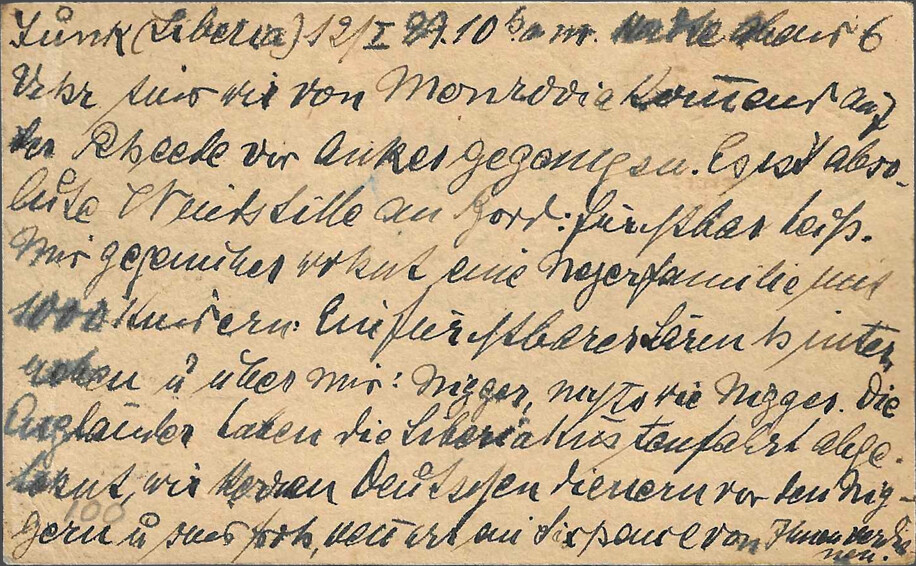 Junk (Liberia) 12/I 29. 10 h a m. abend 6
Uhr sind wir von Monrovia kommend auf
der Rheede vor Anker gegangen. Es ist abso-
lute Windstille an Bord: furchtbar heiß.
Mir gegenüber wohnt eine Negerfamilie mit
1000 Kindern: Ein furchtbarer Lärm hinter
neben u über mir: Nigger, nichts wie Nigger. Die
Engländer haben die Liberiaküstenfahrt abge-
lehnt, wir Herren Deutschen dienern vor den Nig-
gern u sind froh, wenn wir von Ihnen verdie-
nen.
100